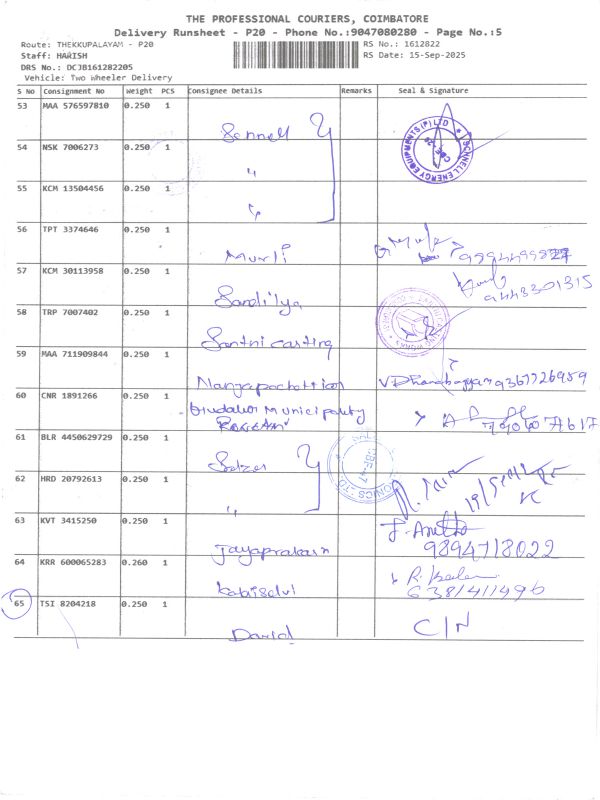 THE PROFESSIONAL COURIERS, COIMBATORE
Delivery Runsheet - P20 - Phone No.:9047080280 - Page No.:5
Route: THEKKUPALAYAM - P20
RS No.: 1612822
Staff: HARISH
RS Date: 15-Sep-2025
DRS No.: DCJB161282205
Vehicle: Two Wheeler Delivery
S No Consignment No Weight PCS Consignee Details Remarks Seal & Signature
53 MAA 576597810 0.250 1
SCHNELL ENERGY EQUIPMENTS (P) LTD
54 NSK 7006273 0.250 1
"
55 KCM 13504456 0.250 1
"
56 TPT 3374646 0.250 1
Murli
57 KCM 30113958 0.250 1
9443301315
Sandilya
58 TRP 7007402 0.250 1
Santhi casting
59 MAA 711909844 0.250 1
9367726959
60 CNR 1891266 0.250 1
Gudalur Municipality
61 BLR 4450629729 0.250 1
62 HRD 20792613 0.250 1
"
63 KVT 3415250 0.250 1
Jayaprakash
9894718022
64 KRR 600065283 0.260 1
Kalaiselvi
6381411496
65 TSI 8204218 0.250 1
David C/N